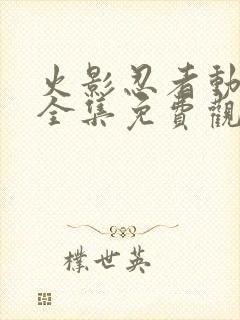 火影忍者動
全集免費觀
樸世英